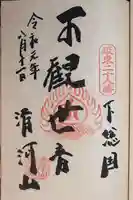 坂東二十八番
下総国
大観世音
滑河山
令和元年
八月十一日